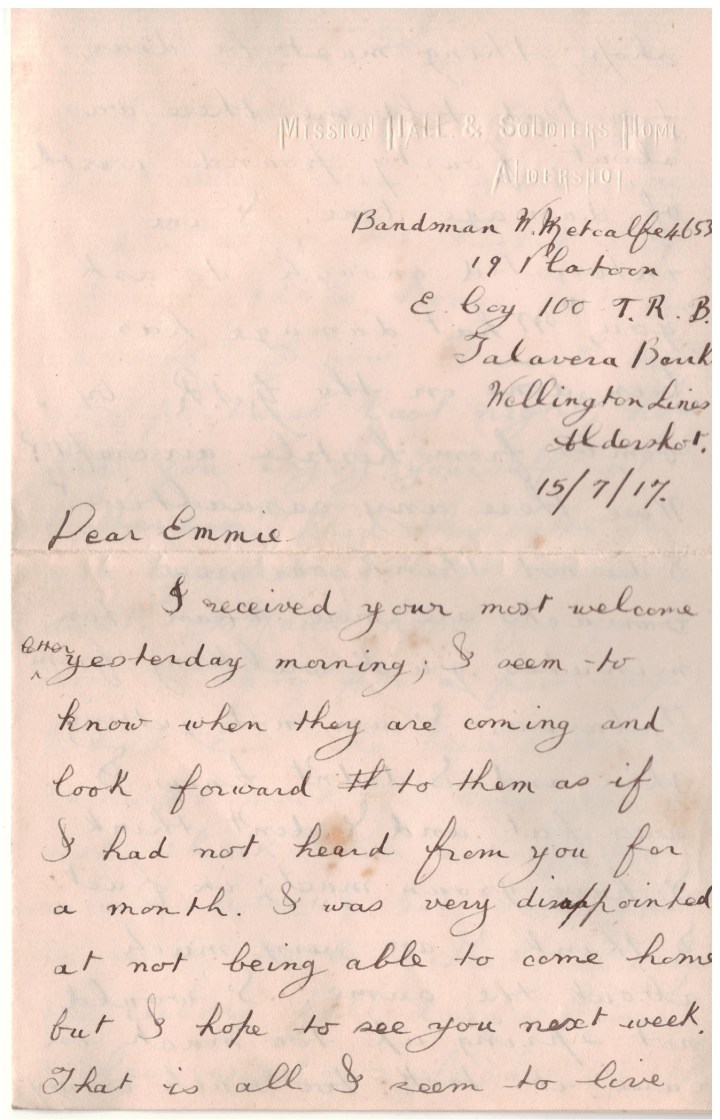 MISSION HALL & SOLDIERS HOME
ALDERSHOT.
Bandsman W. Metcalfe 4653
19 Platoon
E. Coy 100 T.R.B.
Talavera Bark
Wellington Lines
Aldershot.
15/7/17.
Dear Emmie
I received your most welcome
letter
yesterday morning; I seem to
know when they are coming and
look forward to them as if
I had not heard from you for
a month. I was very disappointed
at not being able to come home
but I hope to see you next week.
That is all I seem to live